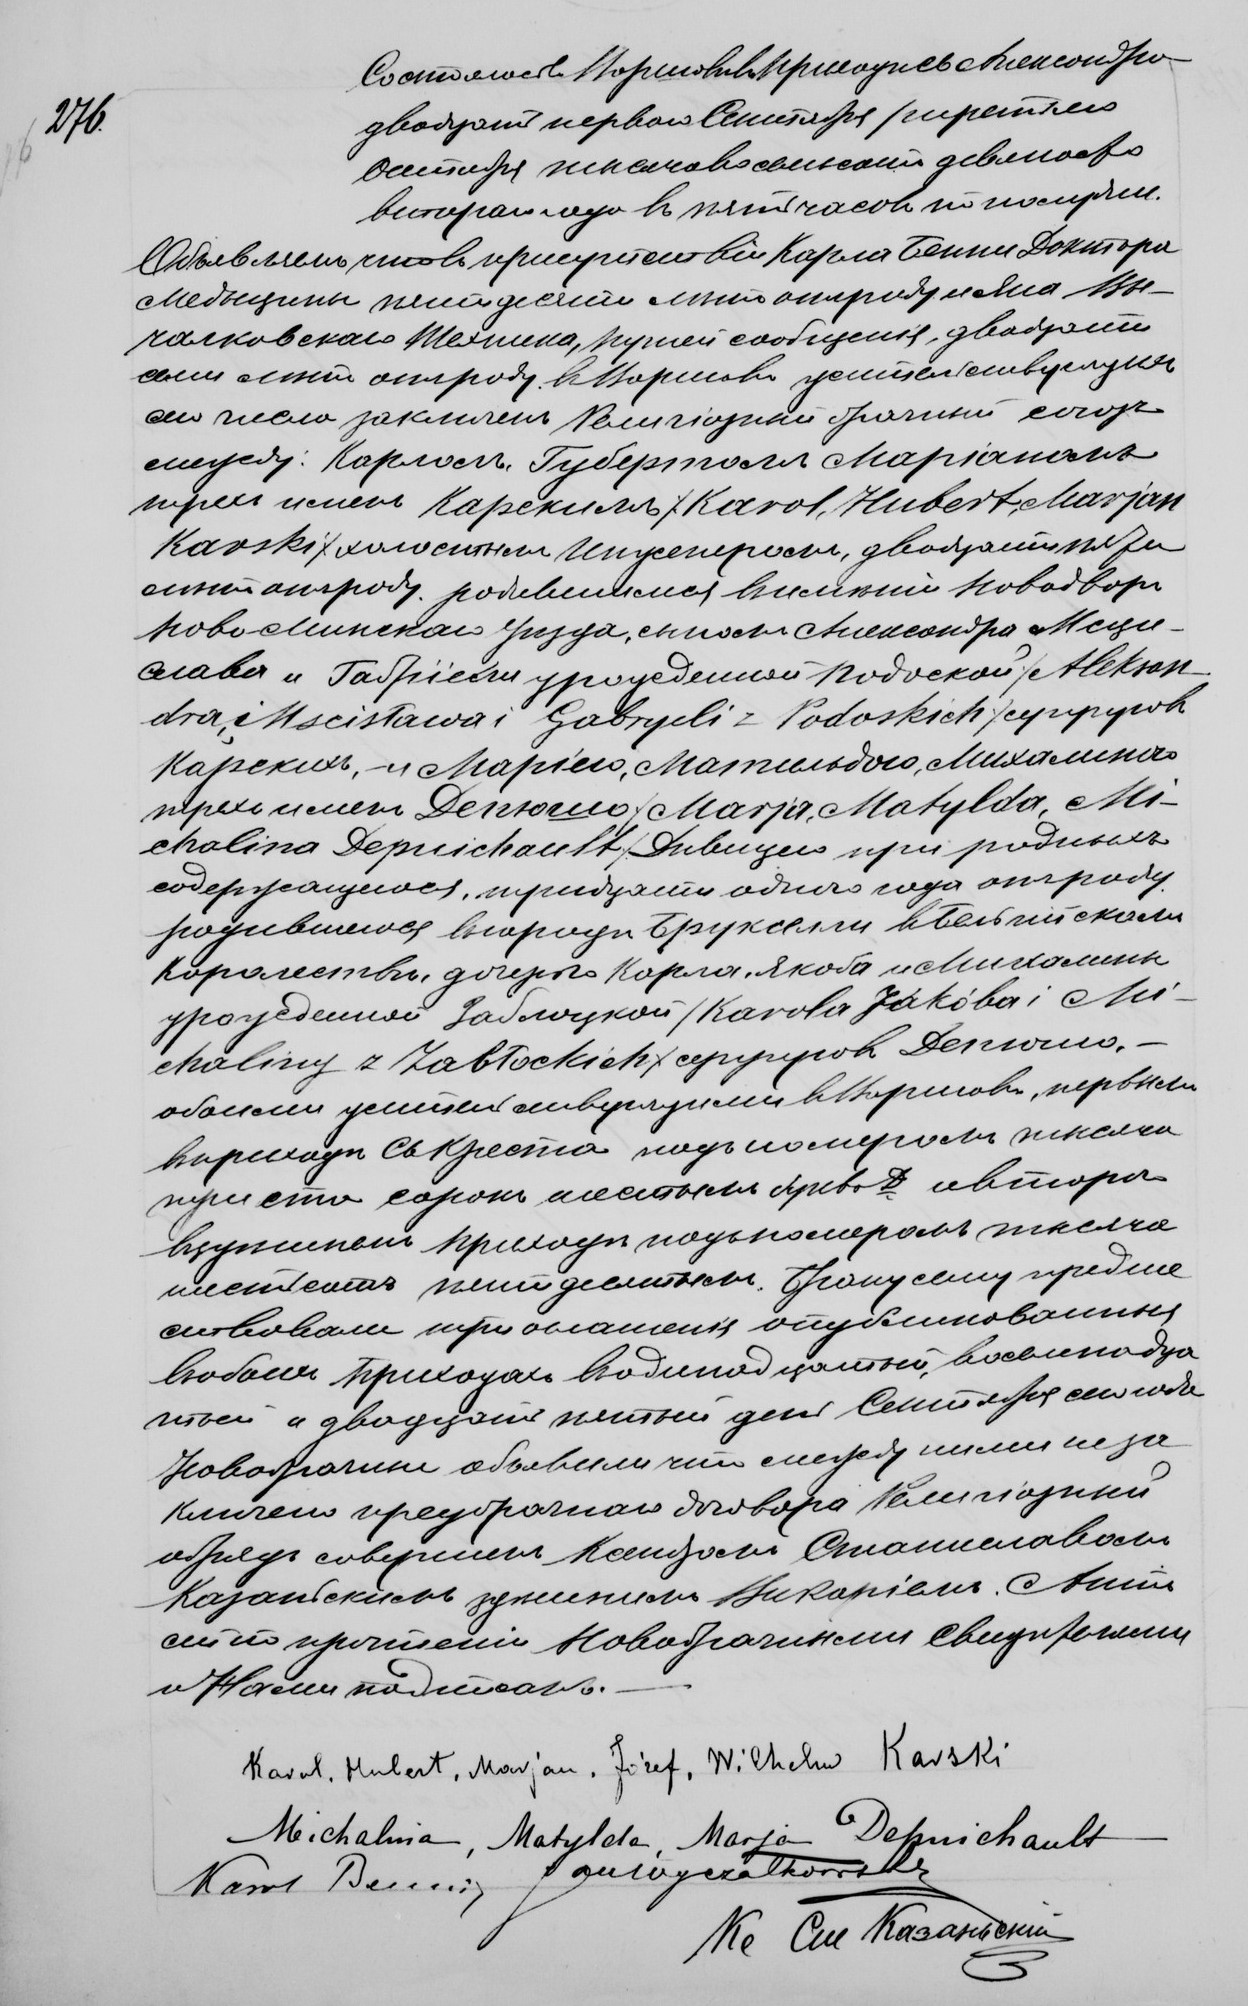 276.
Состоялось въ Варшавѣ въ приходѣ Св Александра
двадцать перваго Сентября /третьяго
Октября/ тысяча восемьсотъ девяносто
втораго года въ пять часовъ по полудни.
Объявляемъ что въ присутствіи Карла Бенни Доктора
Медицины пятидесяти лѣтъ отъ роду и Яна Вы-
чалковскаго Техника, путей сообщенія, двадцати
семи лѣтъ отъ роду. въ Варшавѣ жительствующихъ
сего числа заключенъ Религіозный брачный союзъ
между: Карломъ, Губертомъ Маріаномъ
трехъ именъ Карскимъ /Karol, Hubert, Marjan
Karski/ холостымъ Инженеромъ, двадцати пяти
лѣтъ отъ роду. родившимся въ имѣніи Новодворъ
Ново Минскаго Уѣзда, сыномъ Александра Мсци-
слава и Габріели урожденной Подоской /Aleksan-
dra, Mscisława i Gabryeli z Podoskich/ супруговъ
Карскихъ, – и Маріею, Матильдою, Михалиною
трехъ именъ Депюшо /Marja, Matylda, Mi-
chalina Depuichault/ Дѣвицею при родныхъ
содержащеюся, тридцати одного года отъ роду
родившеюся въ городѣ Брукселли въ Бельгійскомъ
Королествѣ, дочерью Карла, Якоба и Михалины
урожденной Заблоцкой /Karola Jakóba i Mi-
chaliny z Zabłockich/ супруговъ Депюшо. –
обоими жительствующими въ Варшавѣ, первымъ
въ приходѣ Св Креста подъ номеромъ тысяча
триста сорокъ шестымъ буква D а второю
въ здѣшнемъ приходѣ подъ номеромъ тысяча
шестьсотъ пятидесятымъ. Браку сему предше
ствовали три оглашенія опубликованныя
въ обоихъ приходахъ въ одинадцатый, восемнадца
тый и двадцать пятый день Сентября сего года
Новобрачные объявили что между ними не за
ключено предбрачнаго договора Религіозный
обрядъ совершенъ Ксендзомъ Станиславомъ
Казаньскимъ здѣшнимъ Викаріемъ. Актъ
сей по прочтеніи Новобрачными Свидѣтелями
и Нами подписанъ. —
Karol, Hubert, Marjan, Józef, Wilhelm Karski
Michalina, Matylda, Marja Depuichault
Karol Benni Jan Wyczałkowski
Кс Ст Казаньскій